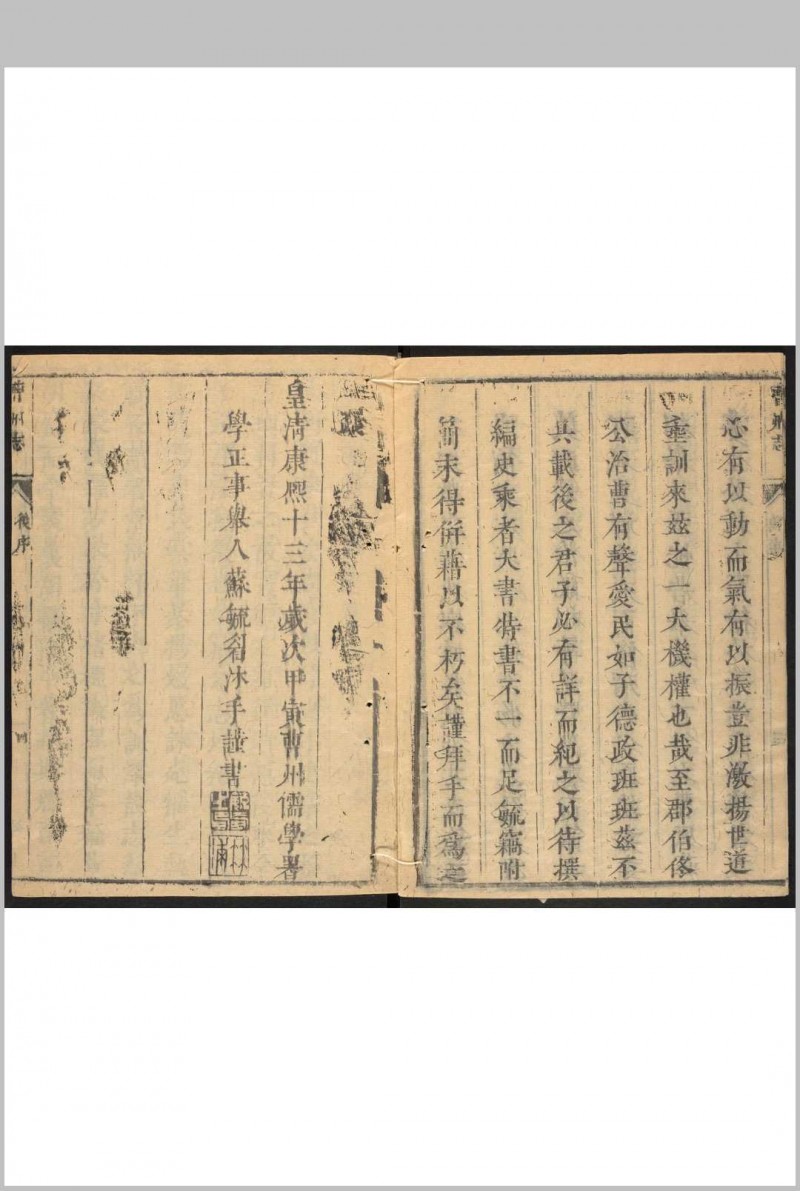 曹州志
心有以動而氣有以振豈非激揚世道
垂訓來茲之一大機權也哉至郡伯佟
公治曹有聲愛民如子德政班班茲不
具載後之君子必有詳而紀之以待撰
編史乘者大書特書不一而足毓竊附
簡末得併藉以不朽矣謹拜手而為之
皇清康熙十三年歲次甲寅曹州儒學署
學正事舉人蘇毓眉沐手謹書
曹州志
後序
四